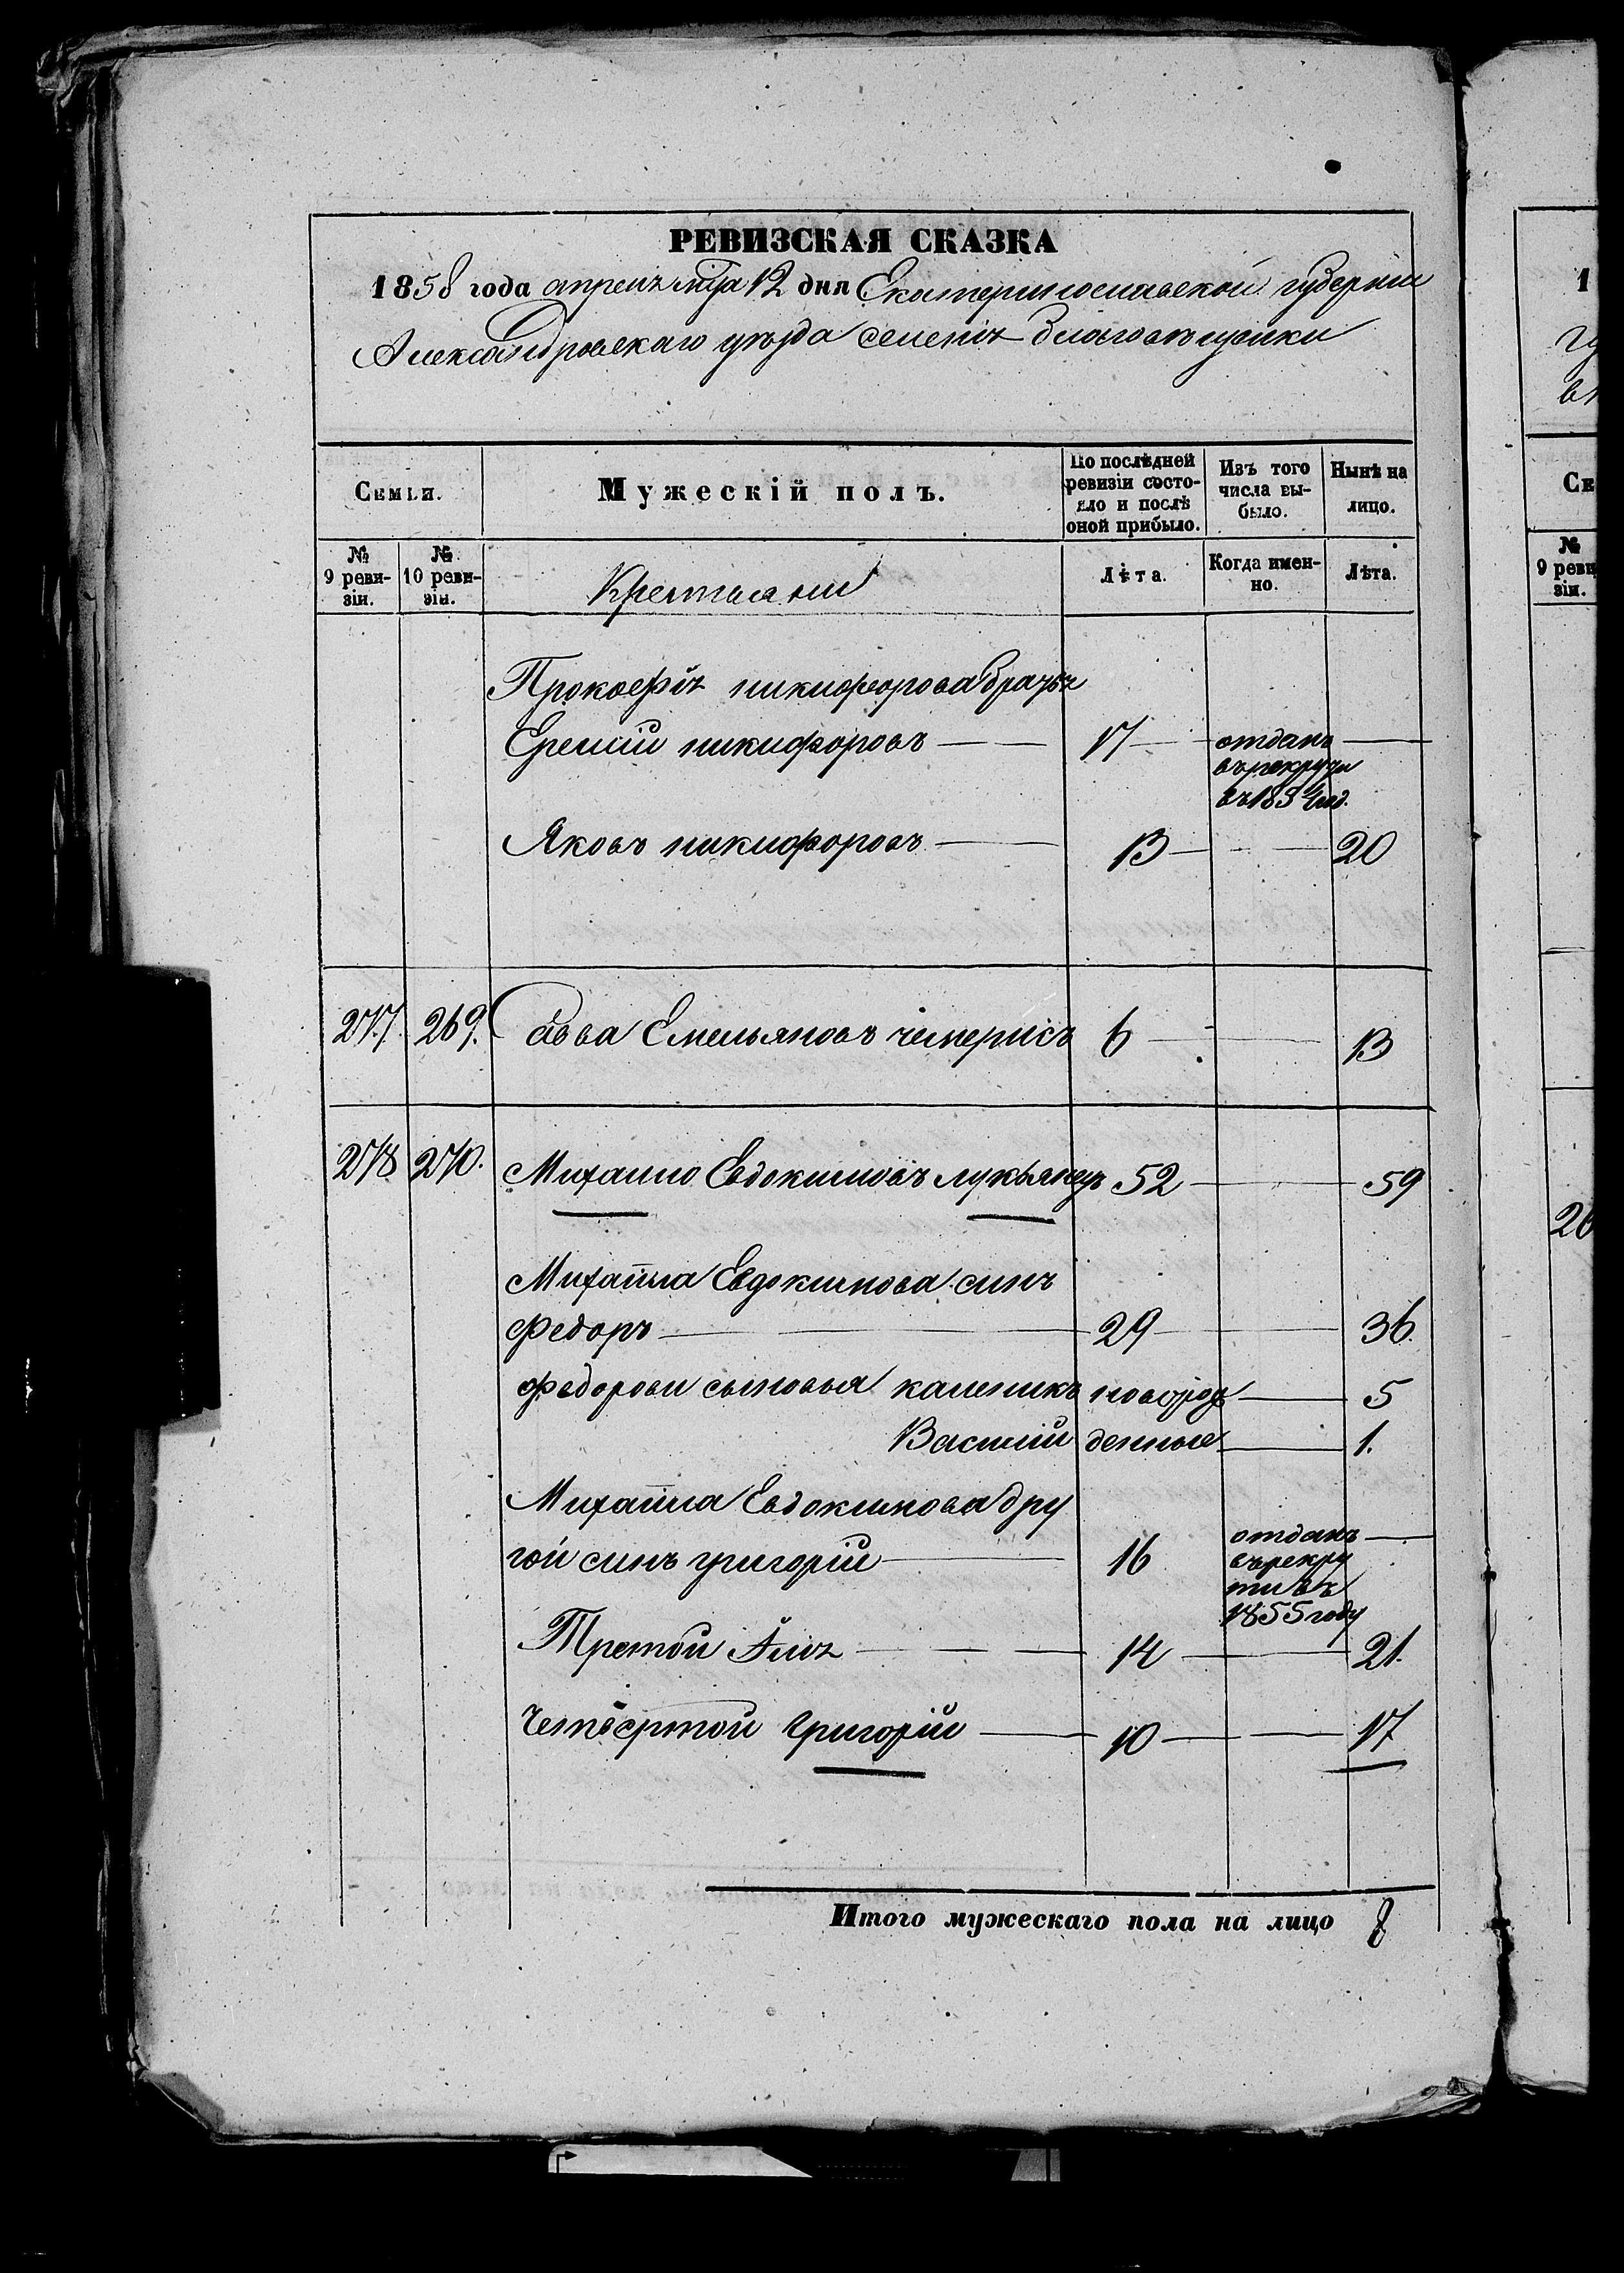 РЕВИЗСКАЯ СКАЗКА
1858 года апреля мца 12 дня Екатеринославской губернии
Александровскаго уезда селения благовещенки
Семьи. Мужескій полъ. По послѣдней ревизіи состояло и послѣ оной прибыло. Изъ того числа выбыло. Нынѣ на лицо.
№ 9 ревизіи. № 10 ревизіи. Крестьяни Лѣта. Когда именно. Лѣта.
Прокофія никифорова братья
Еремій никифоровъ 17 отданъ
въ рекруты
въ 1854 год.
Яковъ никифоровъ 13 20
277. 269. Савва Емельяновъ чемерисъ 6 13
278 270. Михайло Евдокимовъ лукьянец 52 59
Михайла Евдокимова синъ
Федоръ 29 36
Федорови сыновья каленикъ новорож 5
Василій денные 1.
Михайла Евдокимова дру
гой синъ григорій 16 отданъ
въ рекру
ти въ
1855 году
Третой Илія 14 21.
Четвертой Григорій 10 17
Итого мужескаго пола на лицо 8
1
гу
Се
№ 9 реви
зіи.